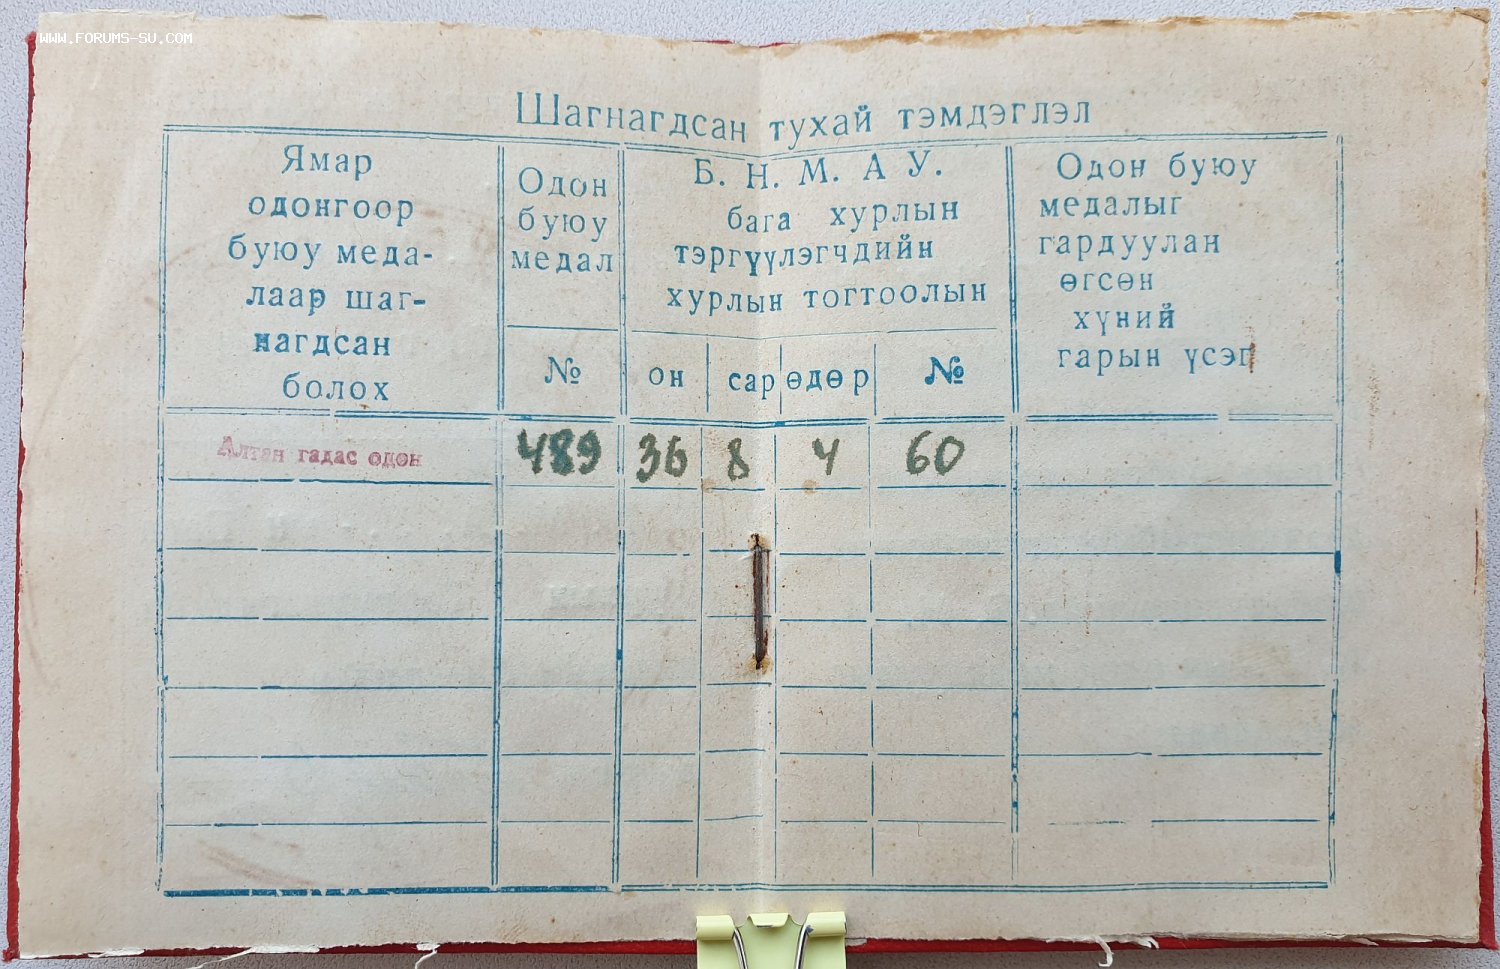 WWW.FORUMS-SU.COM
Шагнагдсан тухай тэмдэглэл
Ямар
одонгоор
буюу меда-
лаар шаг-
нагдсан
болох
Одон
буюу
медал
№
Б. Н. М. А У.
бага хурлын
тэргүүлэгчдийн
хурлын тогтоолын
он сар өдөр №
Одон буюу
медалыг
гардуулан
өгсөн
хүний
гарын үсэг
Алтан гадас одон 489 36 8 4 60